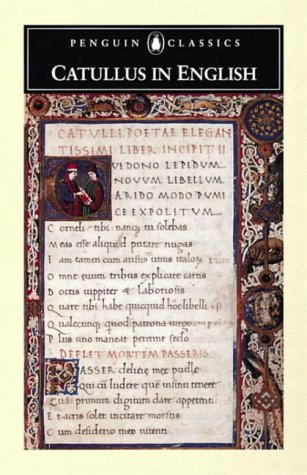 PENGUIN CLASSICS
CATULLUS IN ENGLISH
CATVLLI POETAE ELEGAN
TISSIMI LIBER INCIPIT II
VIDONO LEPIDVM
NOVVM LIBELLVM
ARIDO MODO PVMI
CE EXPOLITVM
Corneli tibi nanq tu solebas
Meas esse aliquid putare nugas
Iam tamen cum ausus unus italoꝝ
Omne euum tribus explicare cartis
Doctis iuppiter & laboriosis
Quare tibi habe quicquid hoc libelli est
Qualecunq quod patrona
Plus uno maneat perenne seclo
DEFLET MORTEM PASSERIS
PASSER delitie meę puellę
Qui cū ludere que insinu tenere
Cui primum digitum dare appetenti
Et acris solet incitare morsus
Cum desiderio meo nitenti